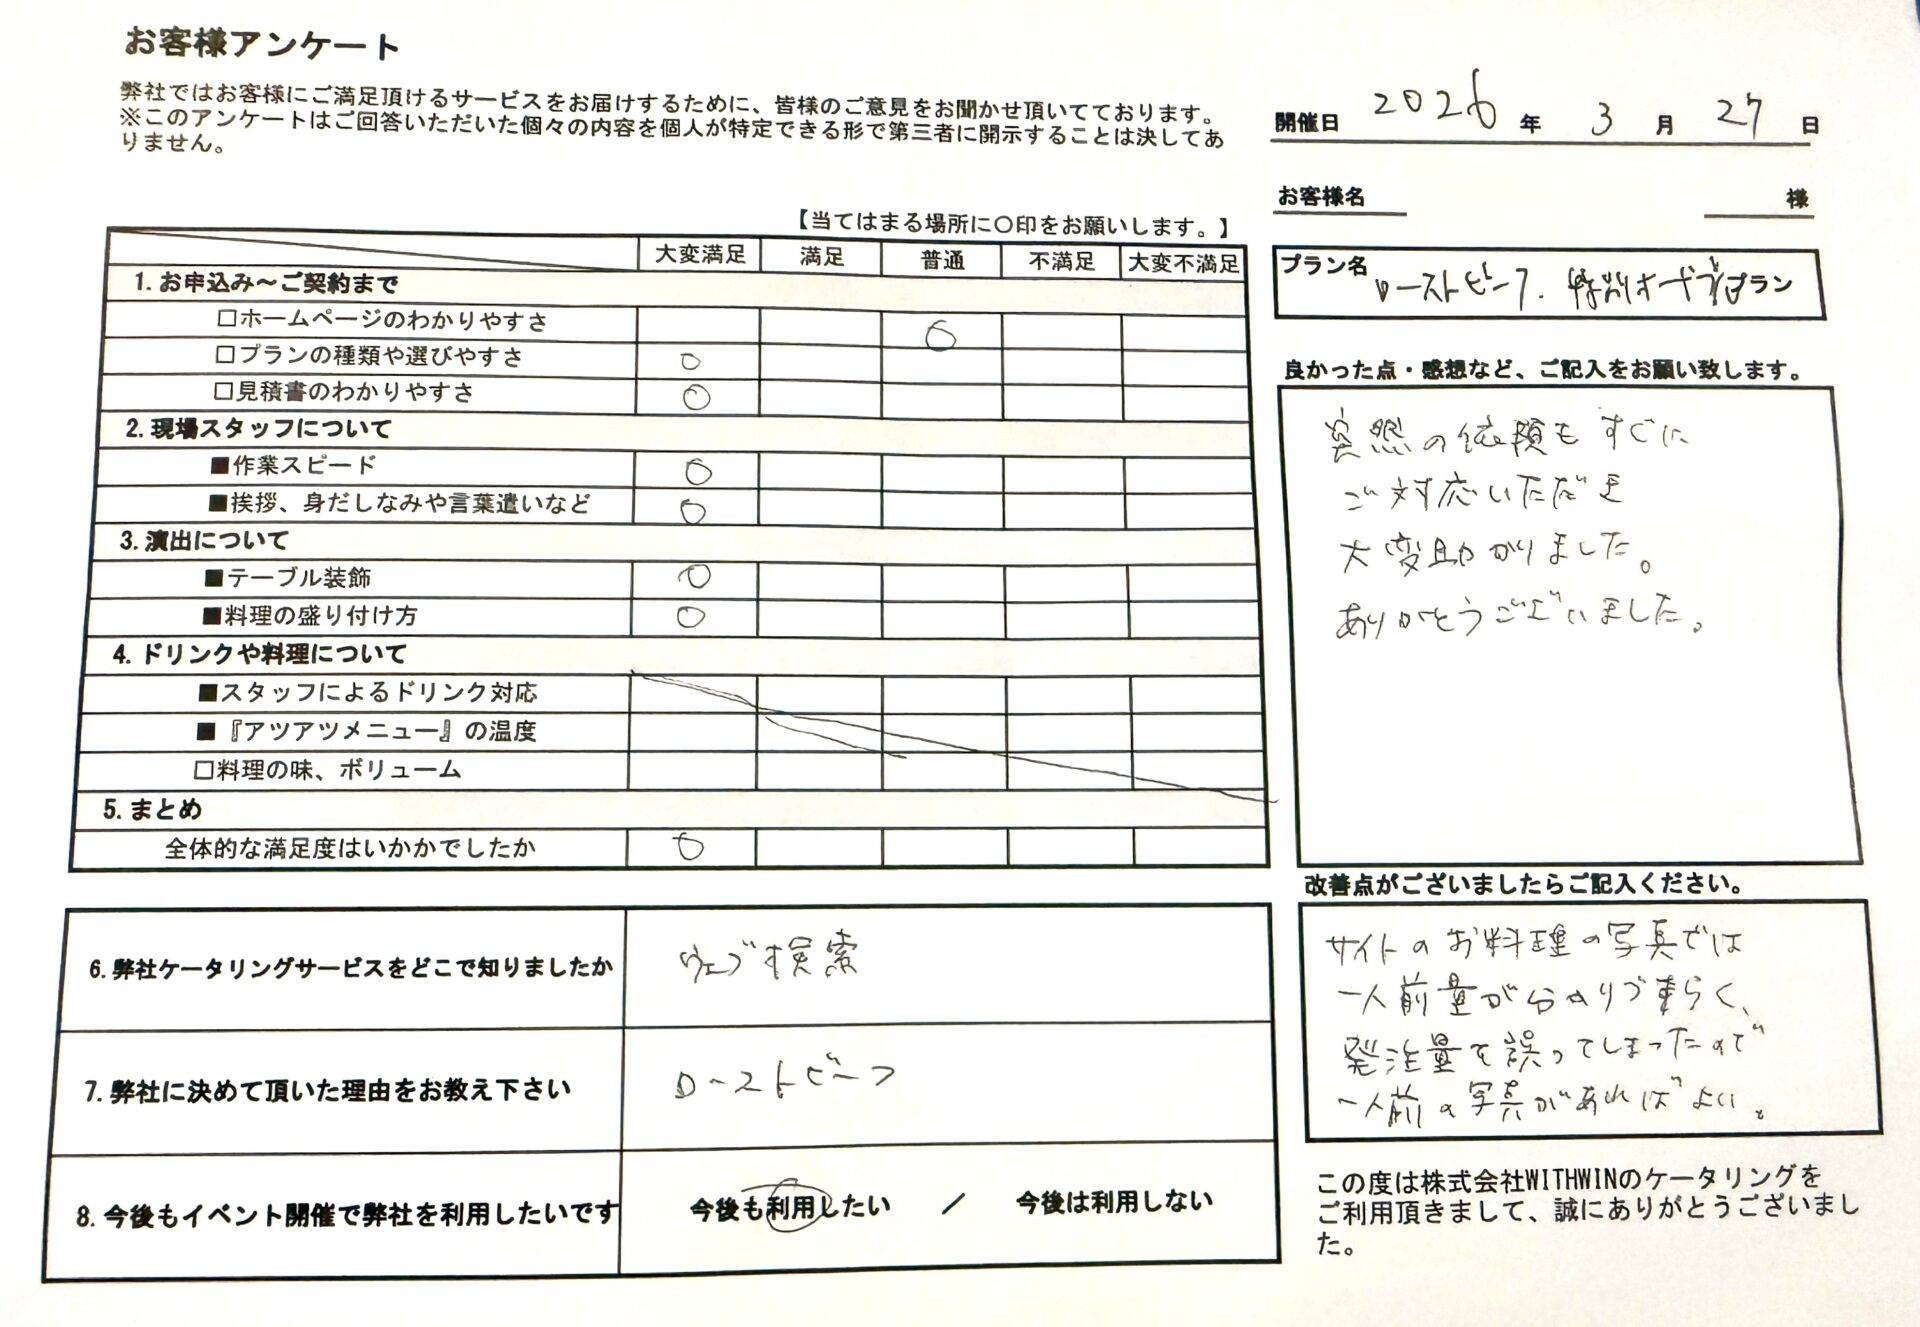 お客様アンケート
弊社ではお客様にご満足頂けるサービスをお届けするために、皆様のご意見をお聞かせ頂いてております。
※このアンケートはご回答いただいた個々の内容を個人が特定できる形で第三者に開示することは決してあ
りません。
開催日 2026 年 3 月 27 日
お客様名 様
【当てはまる場所に〇印をお願いします。】
大変満足 満足 普通 不満足 大変不満足
プラン名 ローストビーフ. 特別オードブルプラン
1.お申込み～ご契約まで
□ホームページのわかりやすさ ○
□プランの種類や選びやすさ ○
□見積書のわかりやすさ ○
2.現場スタッフについて
■作業スピード ○
■挨拶、身だしなみや言葉遣いなど ○
3.演出について
■テーブル装飾 ○
■料理の盛り付け方 ○
4.ドリンクや料理について
■スタッフによるドリンク対応
■『アツアツメニュー』の温度
□料理の味、ボリューム
5.まとめ
全体的な満足度はいかかでしたか ○
良かった点・感想など、ご記入をお願い致します。
突然の依頼もすぐに
ご対応いただき
大変助かりました。
ありがとうございました。
改善点がございましたらご記入ください。
サイトのお料理の写真では
一人前量が分かりづらく、
発注量を誤ってしまったので
一人前の写真があればよい。
6.弊社ケータリングサービスをどこで知りましたか ウェブ検索
7.弊社に決めて頂いた理由をお教え下さい ローストビーフ
8.今後もイベント開催で弊社を利用したいです 今後も利用したい / 今後は利用しない
この度は株式会社WITHWINのケータリングを
ご利用頂きまして、誠にありがとうございまし
た。